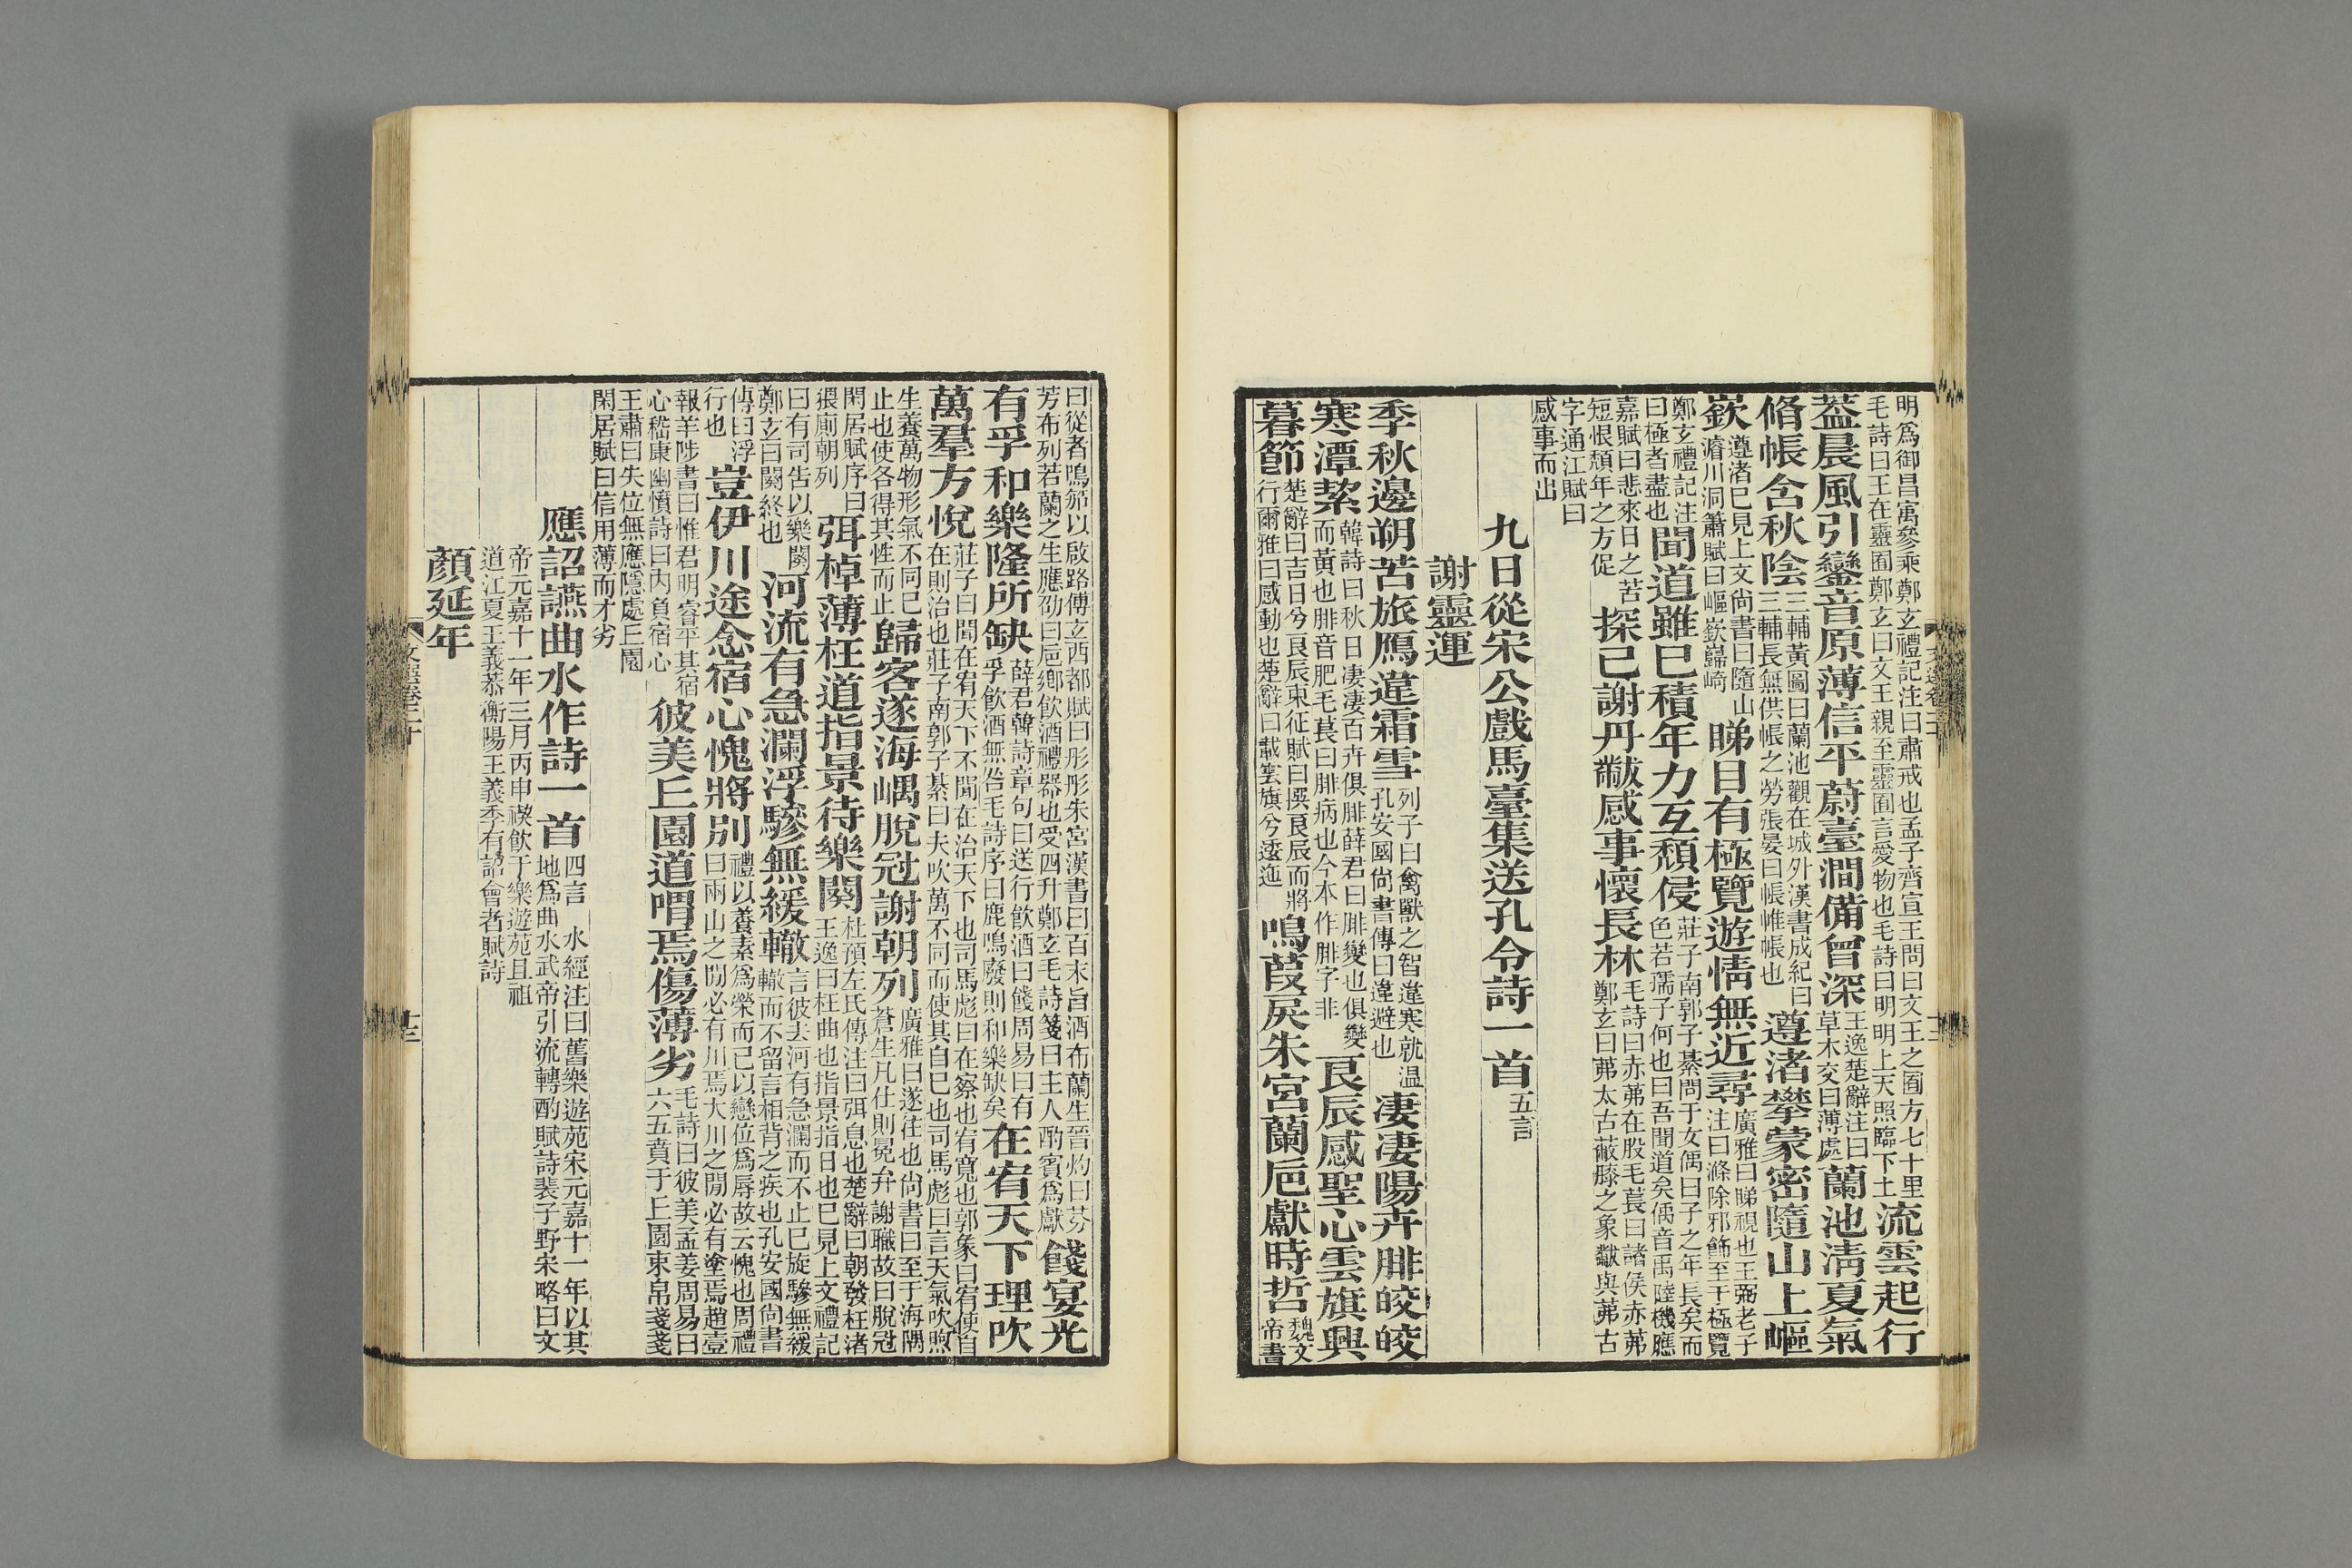 明爲御昌㝢參乘鄭玄禮記注曰肅戒也孟子齊宣王問曰文王之囿方七十里流雲起行
毛詩曰王在靈囿鄭玄曰文王親至靈囿言愛物也毛詩曰明明上天照臨下土
葢晨風引鑾音原薄信平蔚臺澗備曾深王逸楚辭注曰草木交曰薄處蘭池淸夏氣
脩帳含秋陰三輔黃圖曰蘭池觀在城外漢書成紀曰三輔長無供帳之勞張晏曰帳帷帳也遵渚攀蒙密隨山上嶇
嶔遵渚巳見上文尙書曰隨山濬川洞簫賦曰嶇嶔巋崎睇目有極覽遊情無近尋廣雅曰睇視也王弼老子注曰滌除邪飾至于極覽
鄭玄禮記注曰極者盡也聞道雖巳積年力互頽侵莊子南郭子綦問于女偊曰子之年長矣而色若孺子何也曰吾聞道矣偊音禹陸機應
嘉賦曰悲來日之苦短恨頽年之方促探巳謝丹黻感事懷長林毛詩曰赤芾在股毛萇曰諸侯赤芾鄭玄曰芾太古蔽膝之象黻與芾古
字通江賦曰感事而出
九日從宋公戲馬臺集送孔令詩一首五言
謝靈運
季秋邊朔苦旅鴈違霜雪列子曰禽獸之智違寒就温孔安國尙書傳曰違避也凄凄陽卉腓皎皎
寒潭絜韓詩曰秋日凄凄百卉俱腓薛君曰腓變也俱變而黃也腓音肥毛萇曰腓病也今本作腓字非良辰感聖心雲旗興
暮節楚辭曰吉日兮良辰東征賦曰撰良辰而將行爾雅曰感動也楚辭曰載雲旗兮逶迤鳴葭戾朱宮蘭巵獻時哲魏文帝書
曰從者鳴笳以啟路傅玄西都賦曰彤彤朱宮漢書曰百末旨酒布蘭生晉灼曰芬芳布列若蘭之生應劭曰巵鄉飲酒禮器也受四升鄭玄毛詩箋曰主人酌賓爲獻餞宴光
有孚和樂隆所缺薛君韓詩章句曰送行飲酒曰餞周易曰有孚飲酒無咎毛詩序曰鹿鳴廢則和樂缺矣在宥天下理吹
萬羣方悅莊子曰聞在宥天下不聞在治天下也司馬彪曰在察也宥寬也郭象曰宥使自在則治也莊子南郭子綦曰夫吹萬不同而使其自巳也司馬彪曰言天氣吹煦
生養萬物形氣不同巳止也使各得其性而止歸客遂海嵎脫冠謝朝列廣雅曰遂往也尙書曰至于海隅蒼生凡仕則冕弁謝職故曰脫冠
閑居賦序曰猥廁朝列弭棹薄枉渚指景待樂闋杜預左氏傳注曰弭息也楚辭曰朝發枉渚王逸曰枉曲也指景指日也巳見上文禮記
曰有司告以樂闋鄭玄曰闋終也河流有急瀾浮驂無緩轍言彼去河有急瀾而不止巳旋驂無緩轍而不留言相背之疾也孔安國尙書
傳曰浮行也豈伊川途念宿心愧將別禮以養素爲榮而巳以戀位爲辱故云愧也周禮曰兩山之閒必有川焉大川之閒必有塗焉趙壹
報羊陟書曰惟君明睿平其宿心嵇康幽憤詩曰內負宿心彼美丘園道喟焉傷薄劣毛詩曰彼美孟姜周易曰六五賁于丘園束帛戔戔
王肅曰失位無應隱處丘園閑居賦曰信用薄而才劣
應詔讌曲水作詩一首四言　水經注曰舊樂遊苑宋元嘉十一年以其地爲曲水武帝引流轉酌賦詩裴子野宋略曰文
帝元嘉十一年三月丙申禊飲于樂遊苑且祖道江夏王義恭衡陽王義季有詔會者賦詩
顏延年
文選卷二十